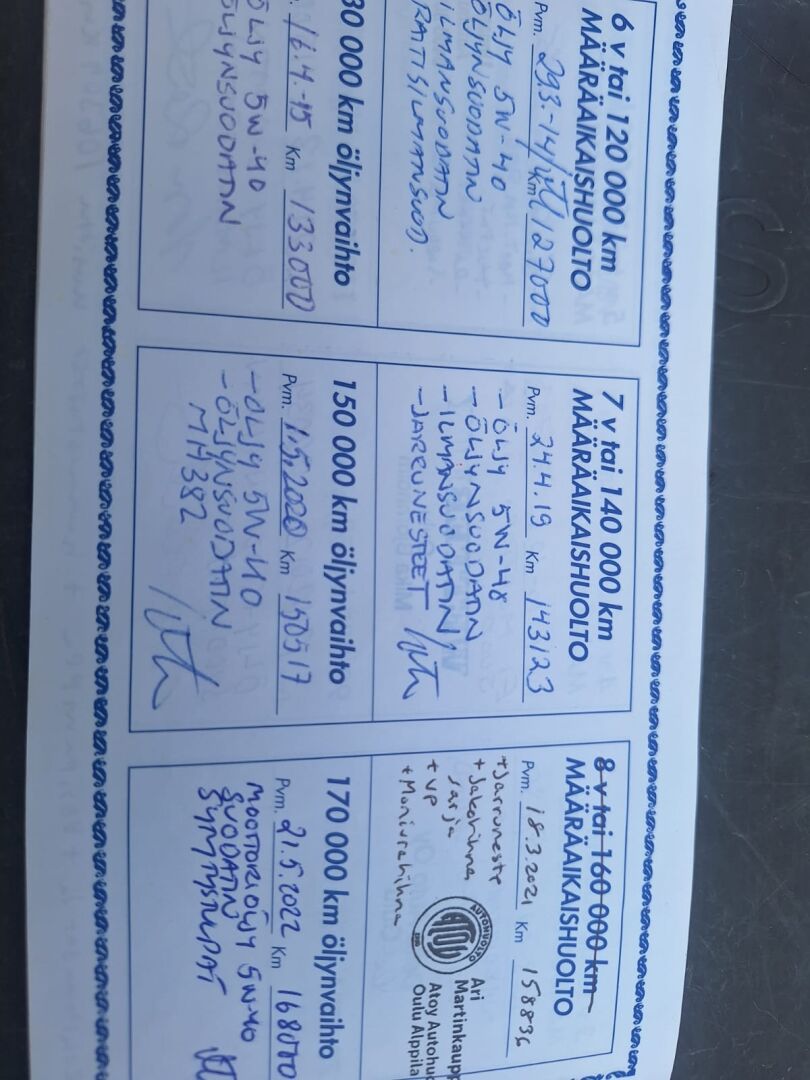 6 v tai 120 000 km
MÄÄRÄAIKAISHUOLTO
Pvm. 29.3-14 Km 127000
ÖLJY 5W-40
ÖLJYNSUODATN
ILMANSUODATN
RATISILMANSUOD.
30 000 km öljynvaihto
16.4-15 Km 133000
ÖLJY 5W-40
ÖLJYNSUODATN
7 v tai 140 000 km
MÄÄRÄAIKAISHUOLTO
Pvm. 24.4.19 Km 143123
- ÖLJY 5W-48
- ÖLJYNSUODATN
- ILMANSUODATIN,
- JARRUNESTEET
150 000 km öljynvaihto
Pvm. 1.5.2020 Km 150517
- ÖLJY 5W-40
- ÖLJYNSUODATN
MH382
8 v tai 160 000 km
MÄÄRÄAIKAISHUOLTO
Pvm. 18.3.2021 Km 158836
+Jarruneste
+Jakohihna
sarja
+VP
+Monivrahihna
AUTOHUOLTO
ATOY
Ari
Martinkaupp
Atoy Autohuo
Oulu Alppila
170 000 km öljynvaihto
Pvm. 21.5.2022 Km 168000
MOOTTORIÖLJY 5W-40
SUODATIN
SYTYTYSTULPAT